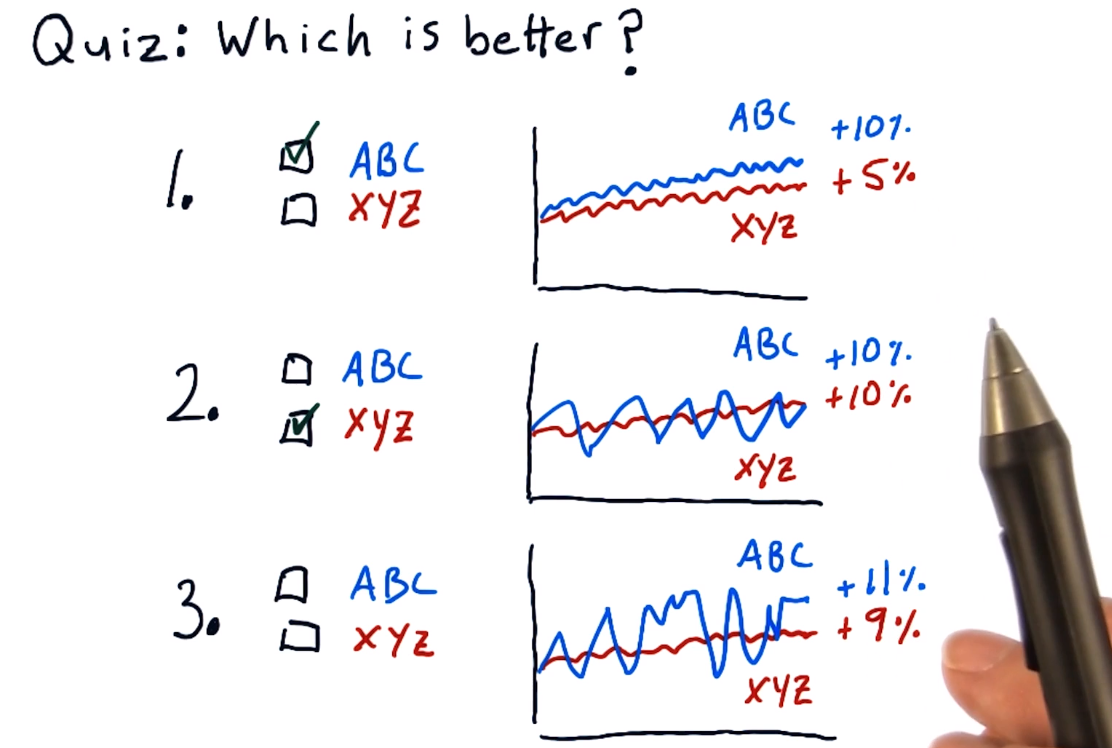 Quiz: Which is better?
1.
ABC
XYZ
ABC +10%
+5%
XYZ
2.
ABC
XYZ
ABC +10%
+10%
XYZ
3.
ABC
XYZ
ABC +11%
+9%
XYZ